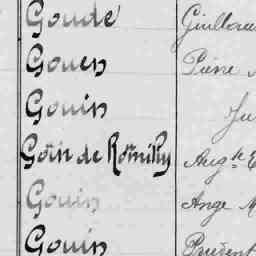 Goude Guillau
Gouen Pierre
Gouin Ju
Goüin de Roumilly Aug.te E
Gouin Ange M
Gouin Prudent